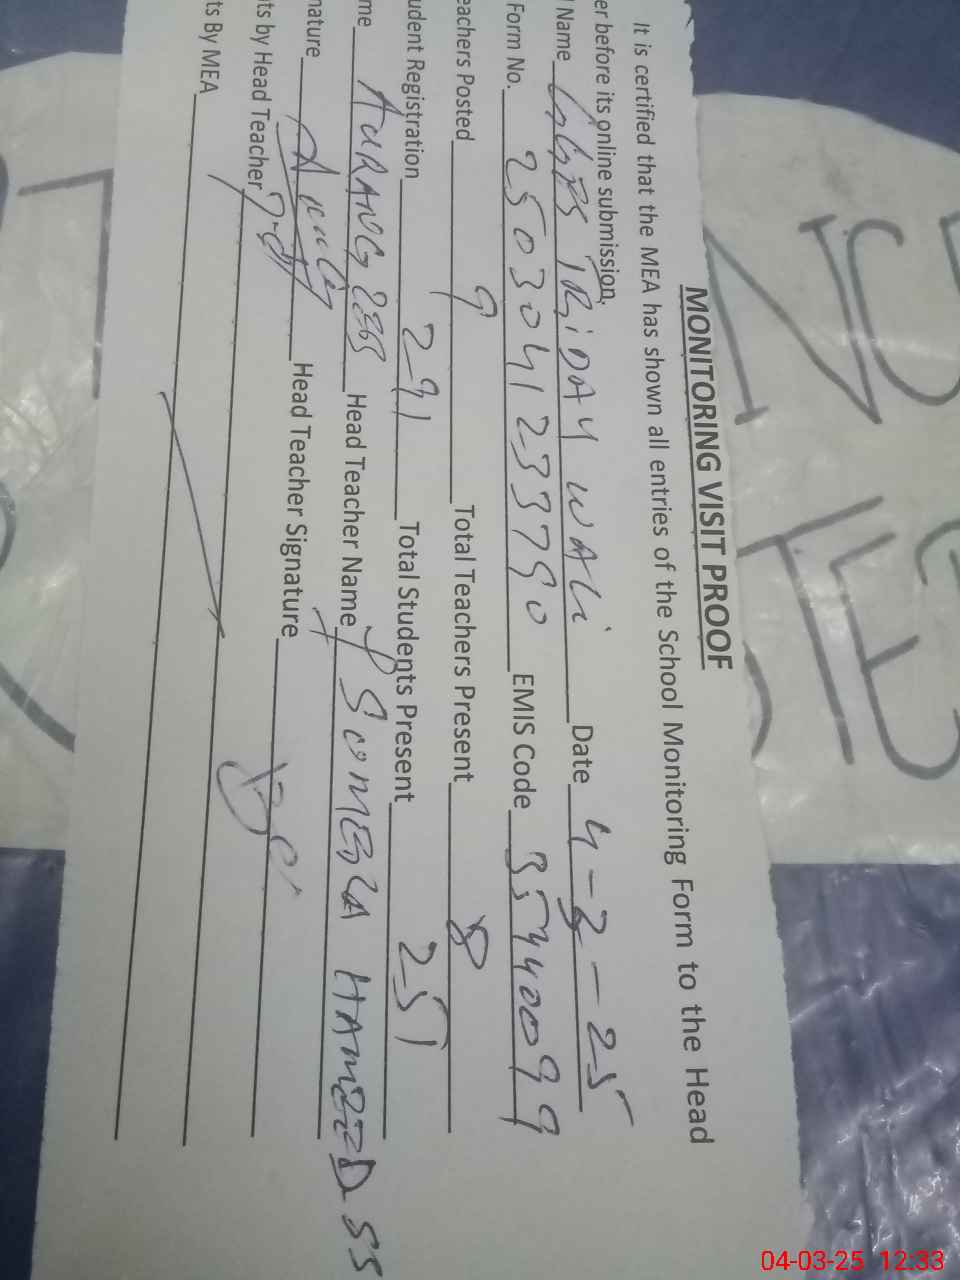 MONITORING VISIT PROOF
It is certified that the MEA has shown all entries of the School Monitoring Form to the Head
er before its online submission.
Name GGPS TRiDAY WALi Date 4-3-25
Form No. 2503041233790 EMIS Code 35440099
eachers Posted 9 Total Teachers Present 8
udent Registration 291 Total Students Present 251
me AURANGZEB Head Teacher Name SUMERA HAMEED SS
nature Head Teacher Signature
ts by Head Teacher
ts By MEA
04-03-25 12:33